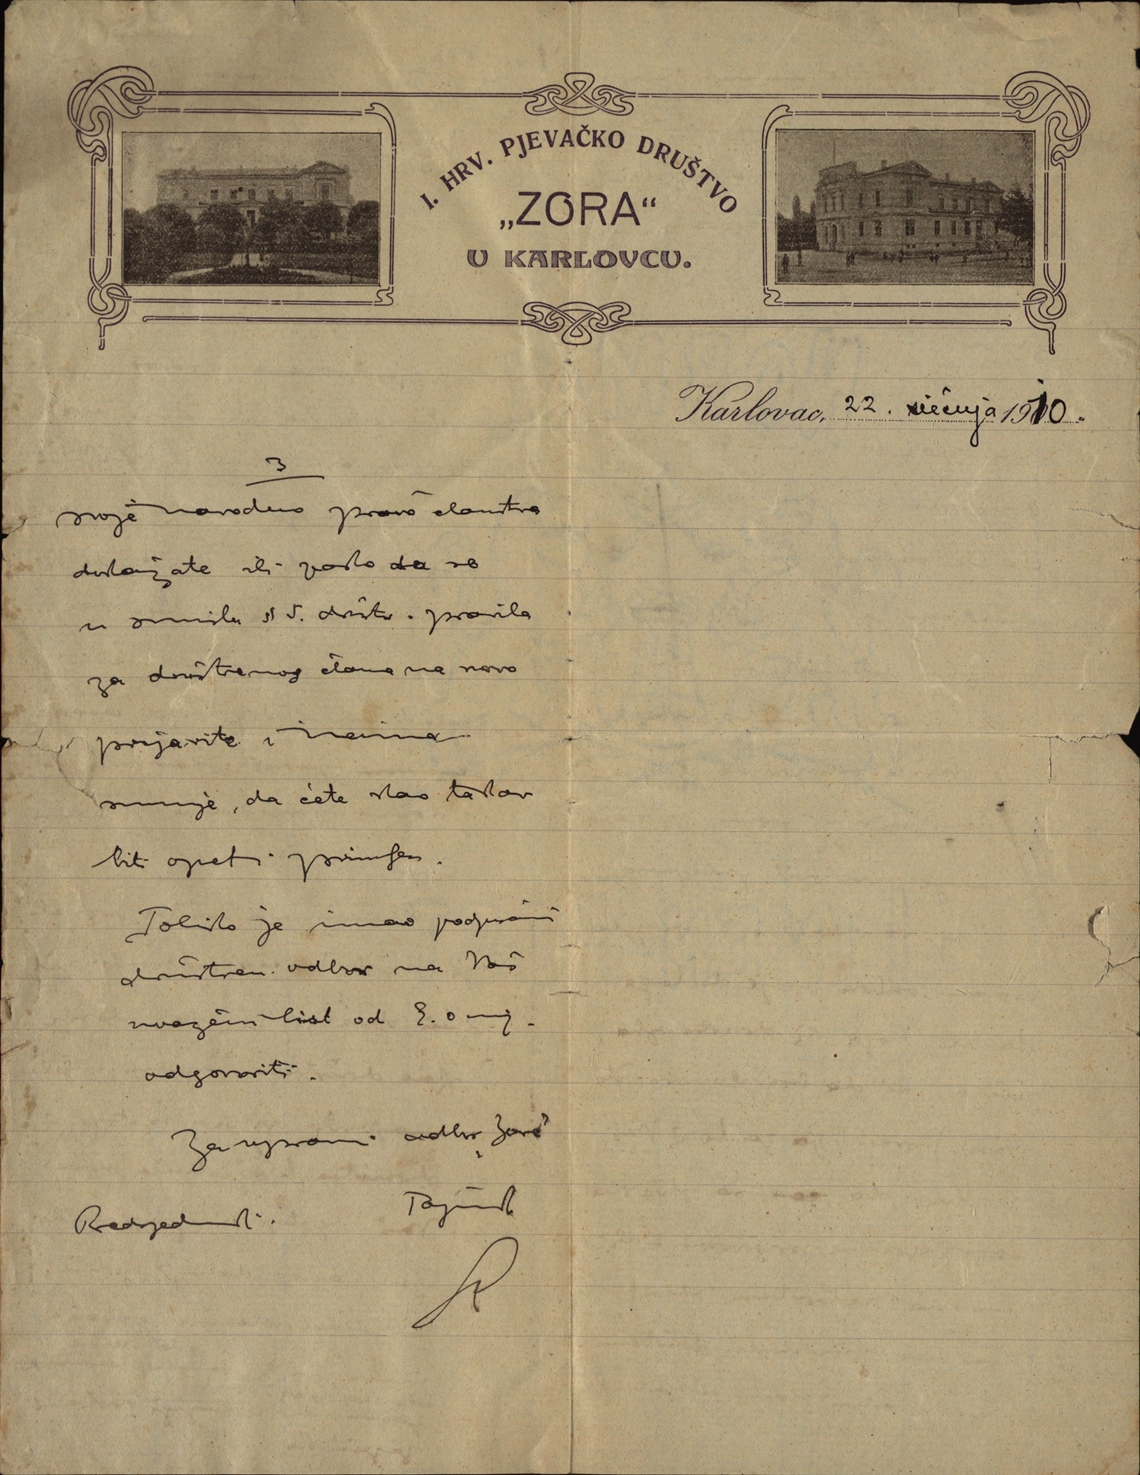 I. HRV. PJEVAČKO DRUŠTVO
„ZORA“
U KARLOVCU.
Karlovac, 22. siečnja 1910.
3
svoje navodno pravo članstva
dokažate ili pako da se
u smislu § 5. društv. pravila
za društvenog člana na novo
prijavite i
, da ćete kao takov
biti opet i primljen.
Toliko je imao podpisani
društven. odbor na Vaš
uvaženi list od 8. o mj.
odgovoriti.
Za upravni odbor „Zore“
Predsjednik. Tajnik